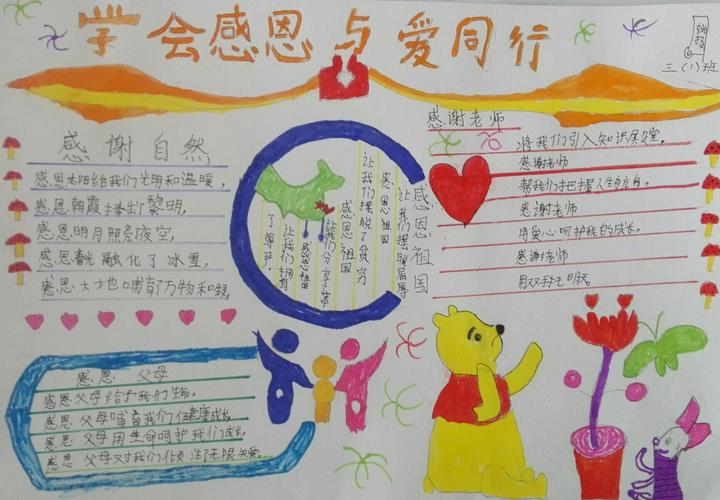 学会感恩与爱同行
三(1)班
感谢自然
感恩太阳给我们光明和温暖，
感恩朝霞捧出了黎明，
感恩明月照亮夜空，
感恩 融化了冰雪，
感恩大地哺育了万物和
感恩祖国
让我们摆脱屈辱
让我们摆脱了贫穷
感恩祖国
让我们分享
感恩祖国
让我们拥有
了尊严。
感谢老师
将我们引入知识 堂，
感谢老师
帮我们把握人生方向。
感谢老师
用爱心呵护我的成长。
感谢老师
用双 明天。
感恩 父母
感恩父母给予我们生命，
感恩父母哺育我们健康成长
感恩父母用生命呵护我们成长，
感恩父母对我们倾注了无限关爱。